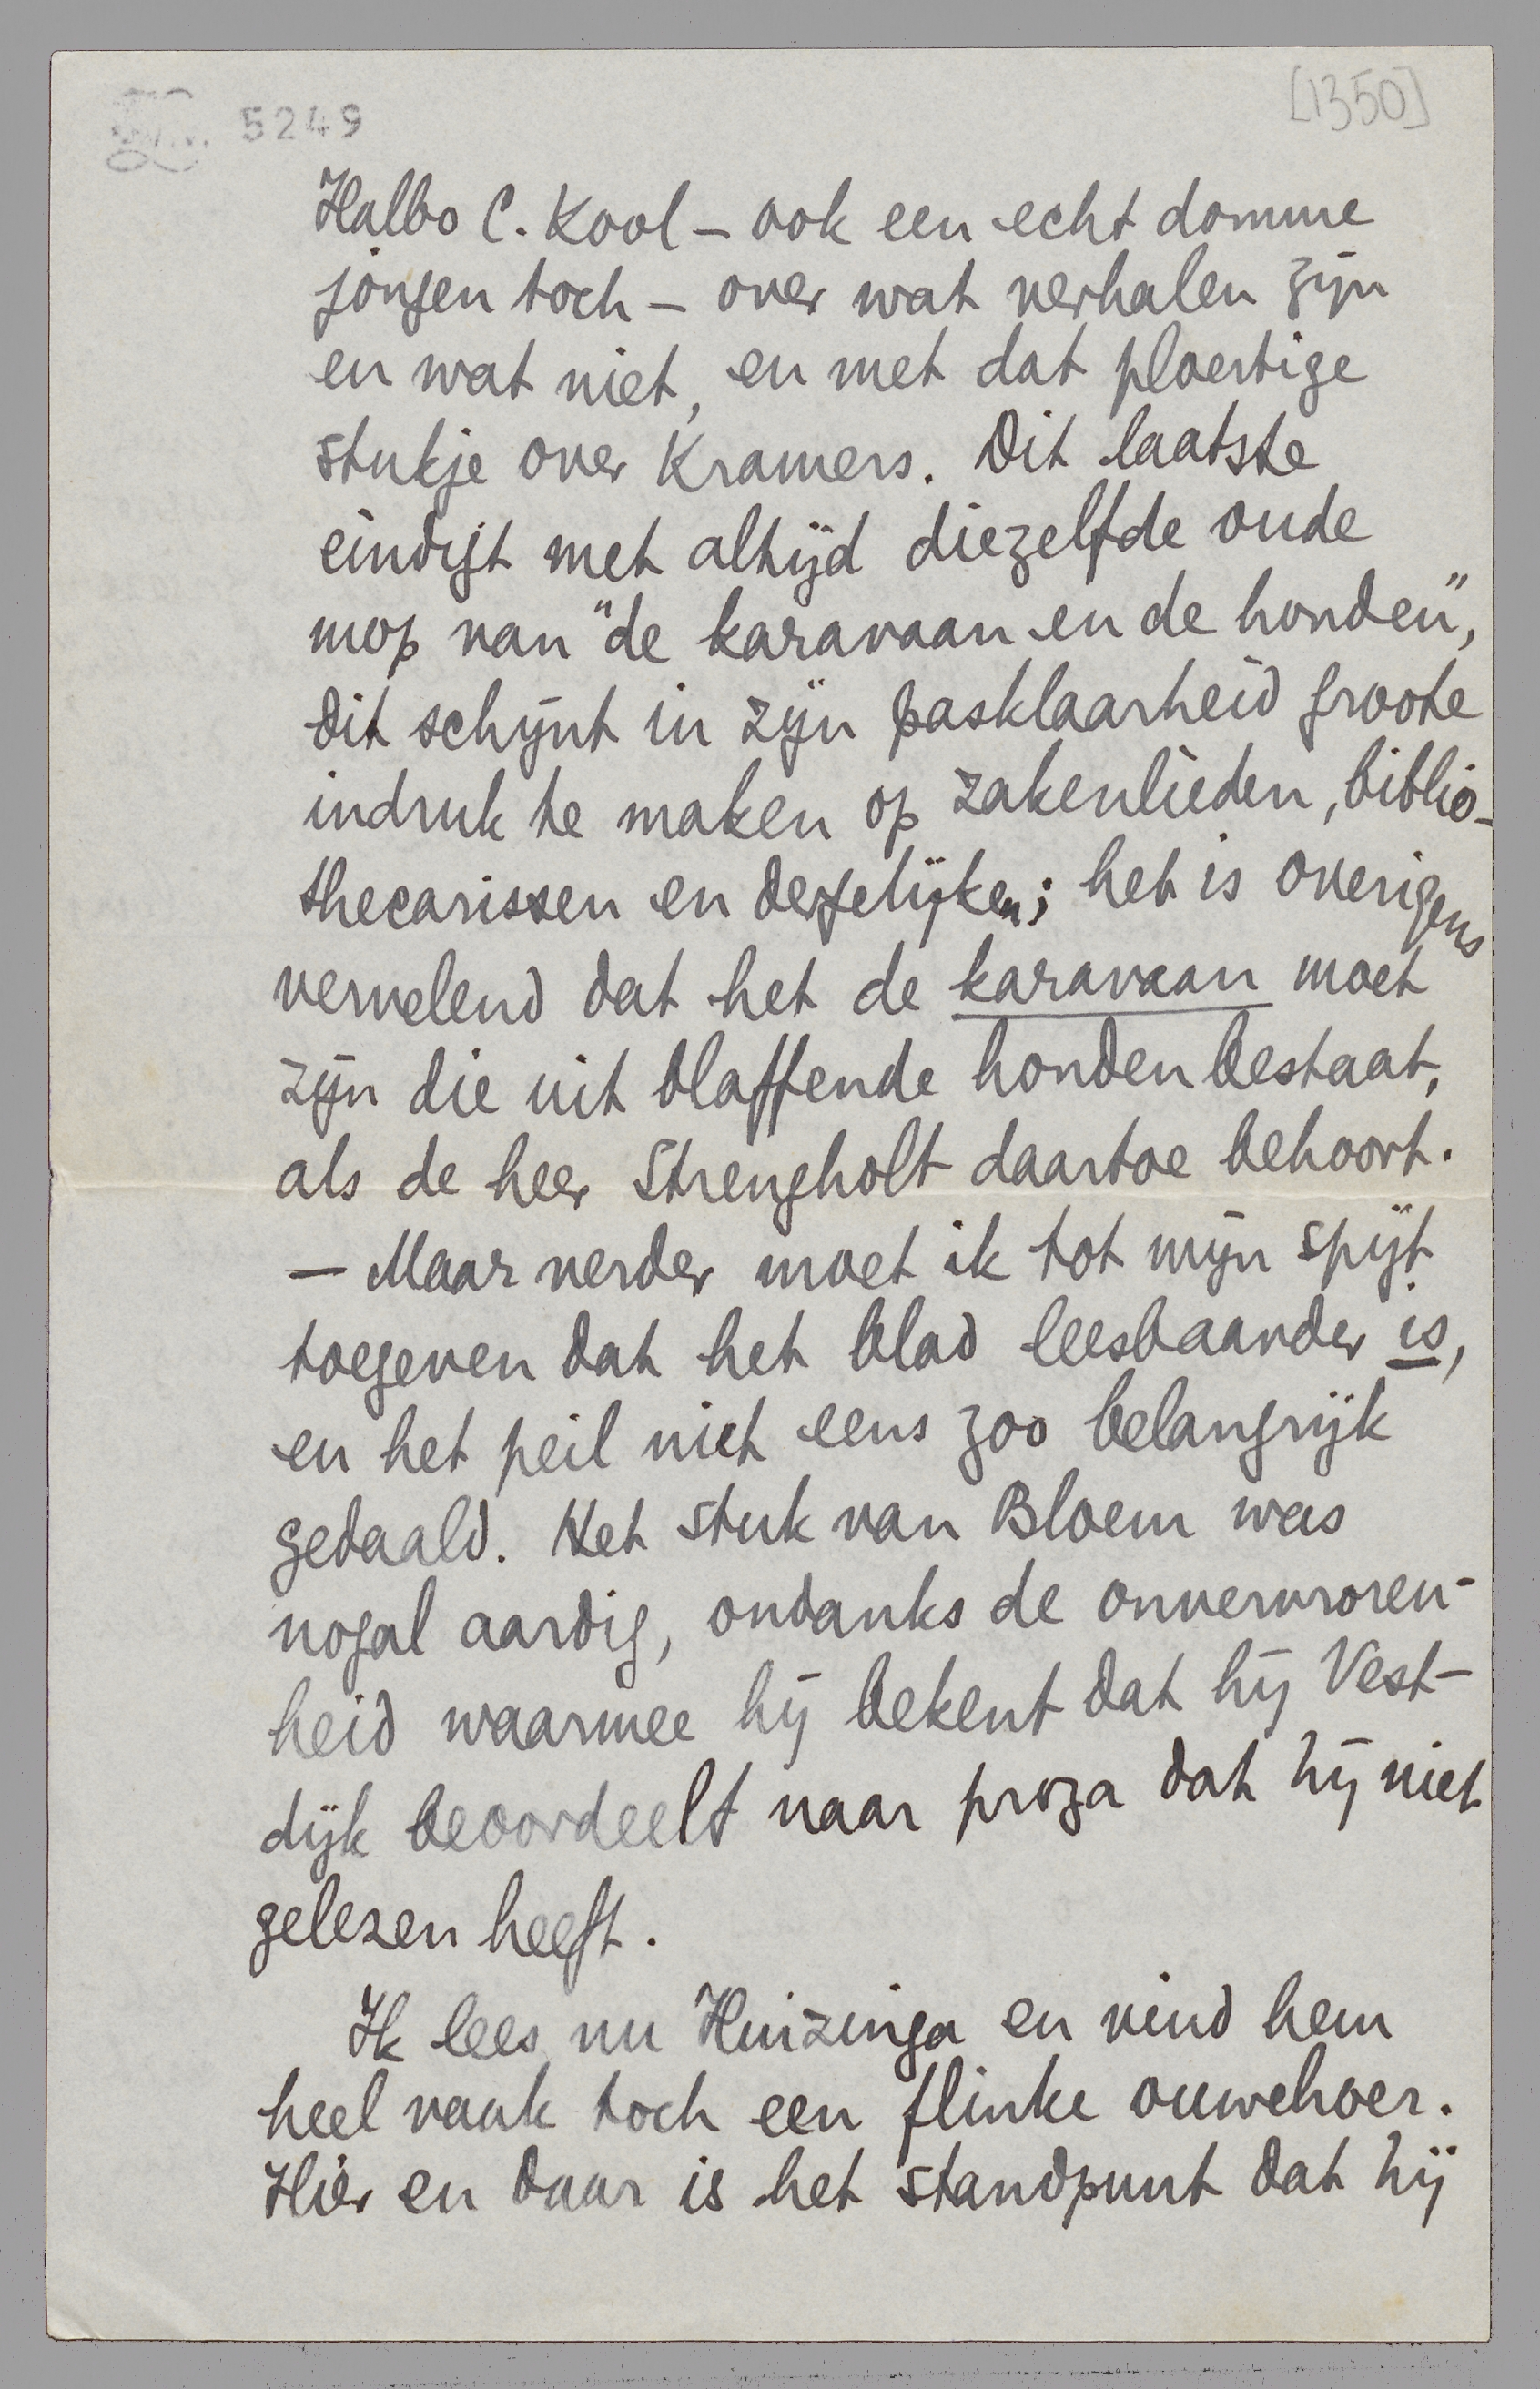 5249
[1350]
Halbo C. Kool – ook een echt domme
jongen toch – over wat verhalen zijn
en wat niet, en met dat ploertige
stukje over Kramers. Dit laatste
eindigt met altijd diezelfde oude
mop van "de karavaan en de honden",
dit schijnt in zijn pasklaarheid groote
indruk te maken op zakenlieden, biblio-
thecarissen en dergelijken; het is overigens
vervelend dat het de karavaan moet
zijn die uit blaffende honden bestaat,
als de heer Strengholt daartoe behoort.
– Maar verder moet ik tot mijn spijt
toegeven dat het blad leesbaarder is,
en het peil niet eens zoo belangrijk
gedaald. Het stuk van Bloem was
nogal aardig, ondanks de onvervroren-
heid waarmee hij bekent dat hij Vest-
dijk beoordeelt naar proza dat hij niet
gelezen heeft.
Ik lees nu Huizinga en vind hem
heel vaak toch een flinke ouwehoer.
Hier en daar is het standpunt dat hij